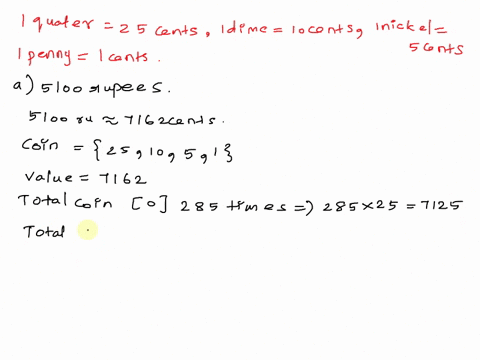 1 quater = 25 cents, 1 dime = 10 conts, 1 nickel = 5 Cents
1 penny = 1 cents.
a) 5100 rupees.
5100 ru ≈ 7162 cents.
Coin = {25, 10, 5, 1}
value = 7162
Total coin [0] 285 times => 285 × 25 = 7125
Total